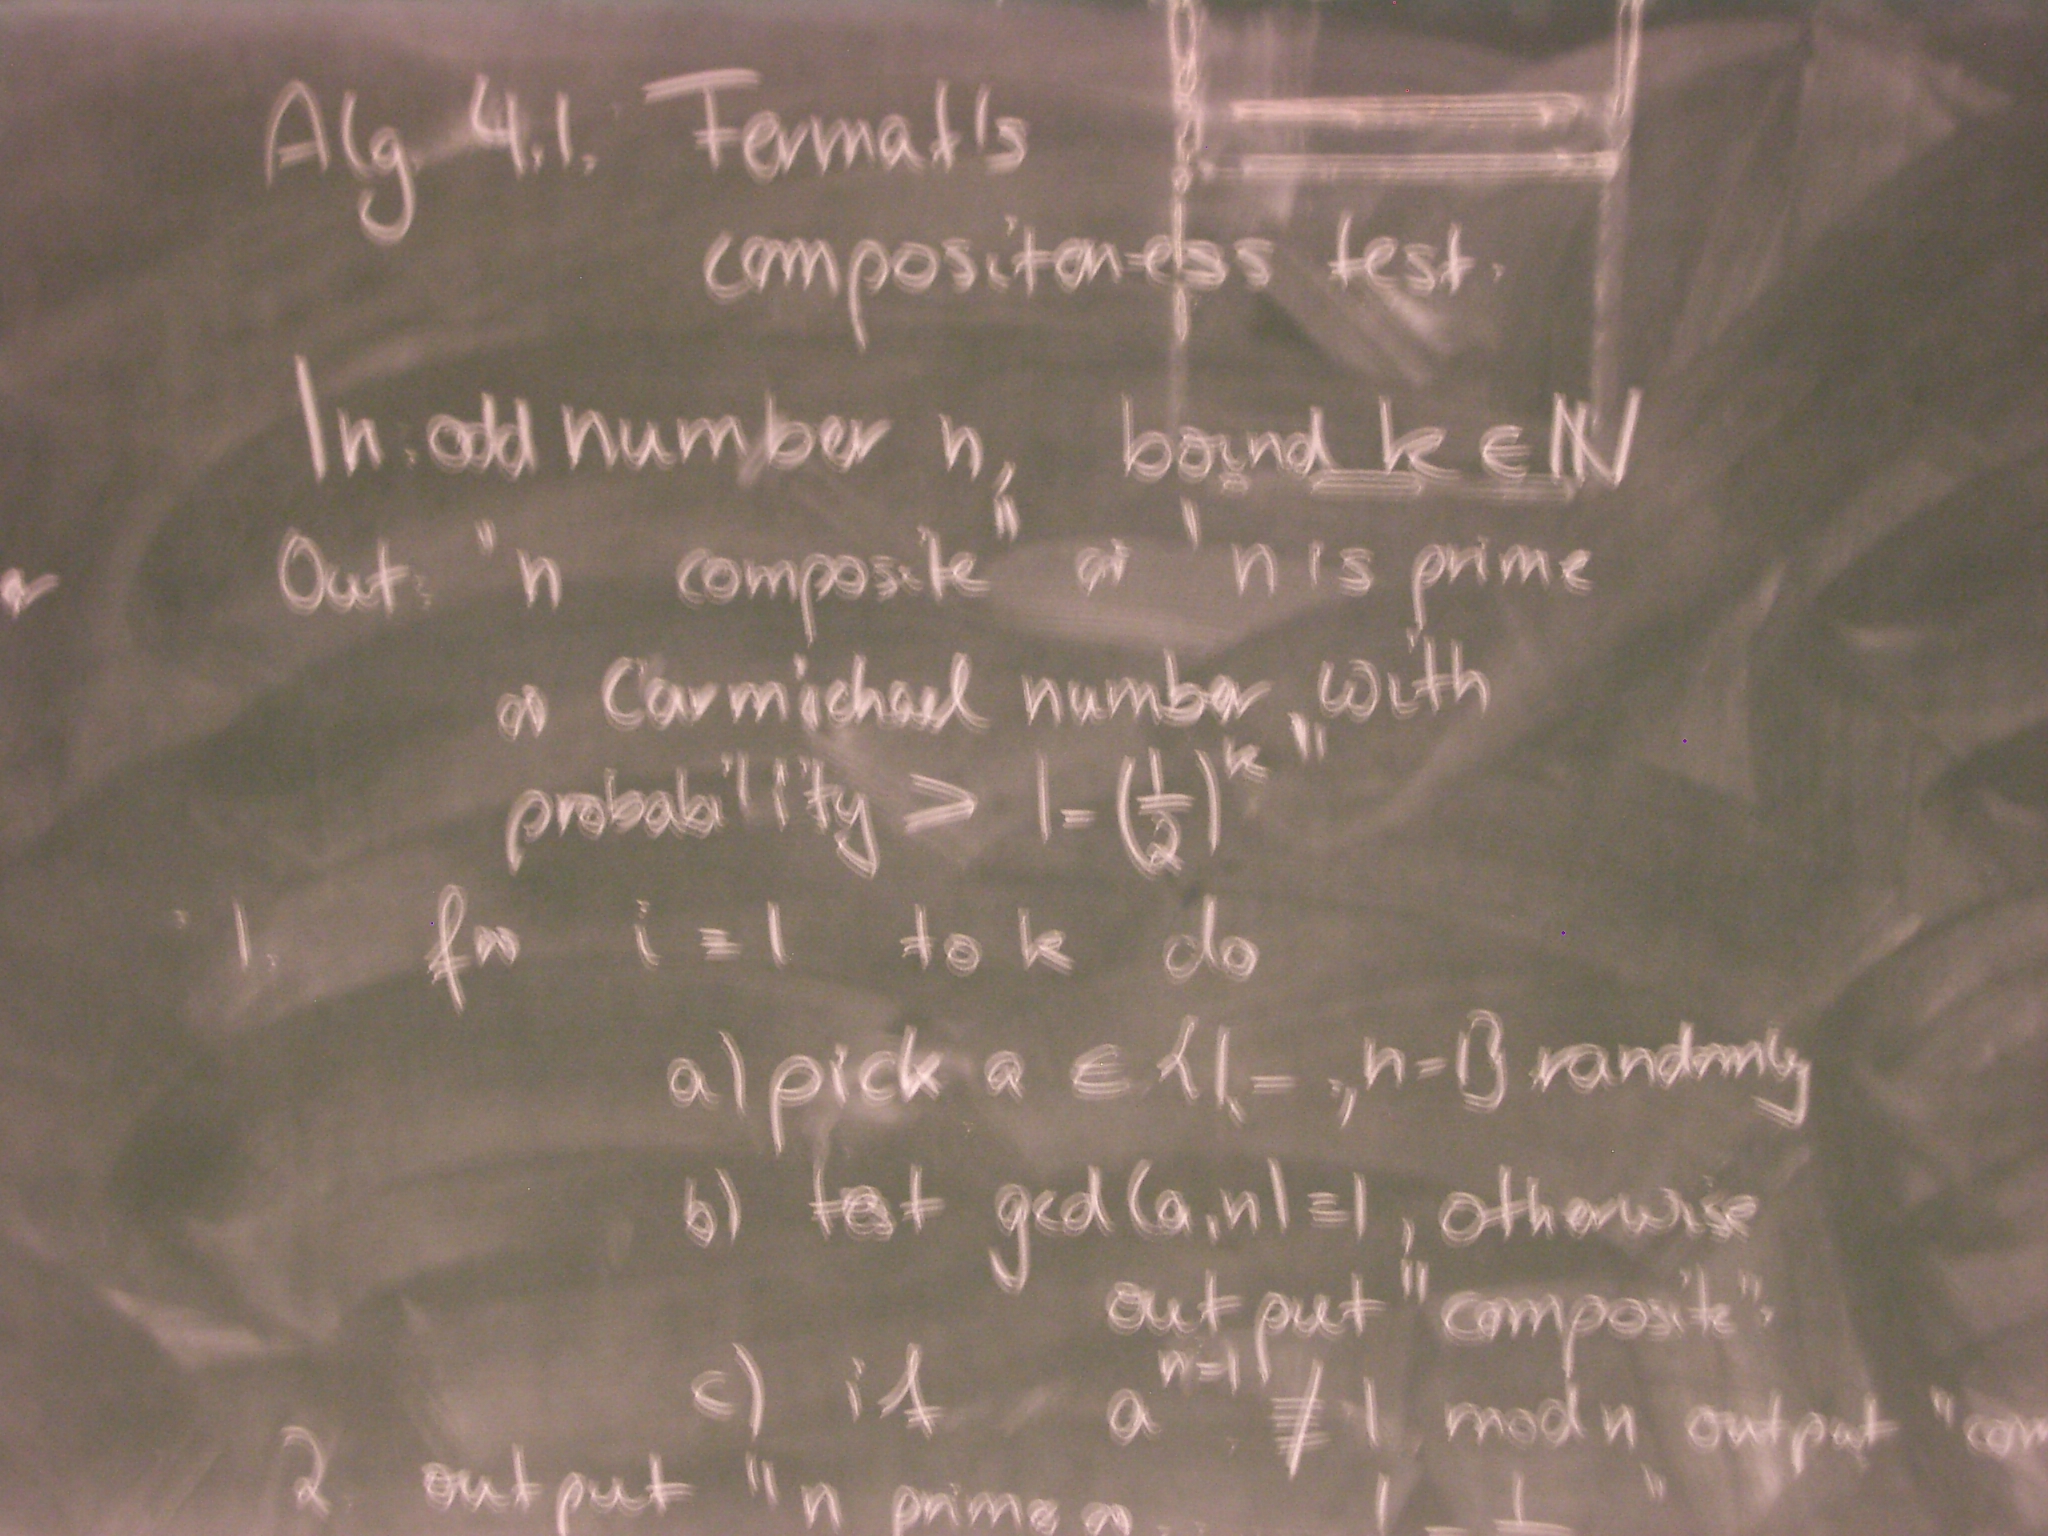 Alg. 4.1. Fermat's
compositeness test.
In: odd number n, bound k ∈ ℕ
Out: "n composite" or "n is prime
or Carmichael number with
probability > 1 - (1/2)^k"
1. for i = 1 to k do
a) pick a ∈ {1, –, n-1} randomly
b) test gcd(a,n)=1, otherwise
output "composite".
c) if a^(n-1) ≢ 1 mod n output "com
2 output "n prime or